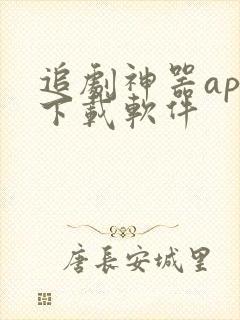 追劇神器ap
下載軟件
唐長安城里